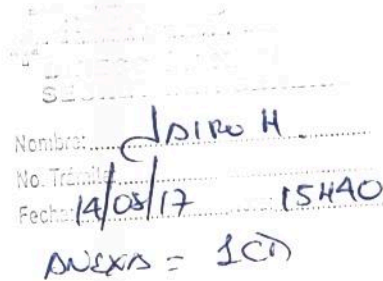 Nombre: JAIRO H.
No. Trámite
Fecha: 14/08/17 15H40
ANEXA = 1CD